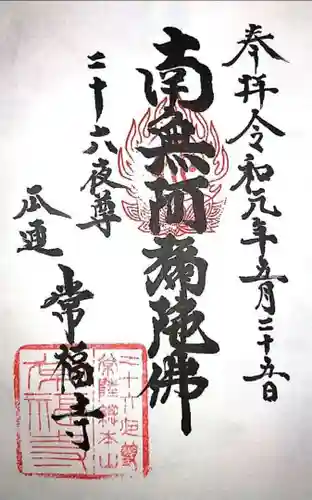 奉拝 令和元年五月二十五日
南無阿弥陀佛
二十六夜尊
瓜連
常福寺
二十六夜尊
常陸総本山